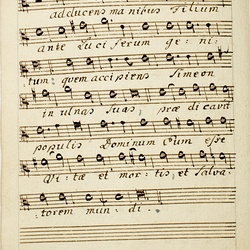 adducens manibus Filium
ante Luciferum ge: ni:
:tum, quem accipiens Simeon
in ulnas suas, præ dicavit
populis Dominum Eum esse
Vi: tæ et mor: tis, et Salva:
:torem mun: di.